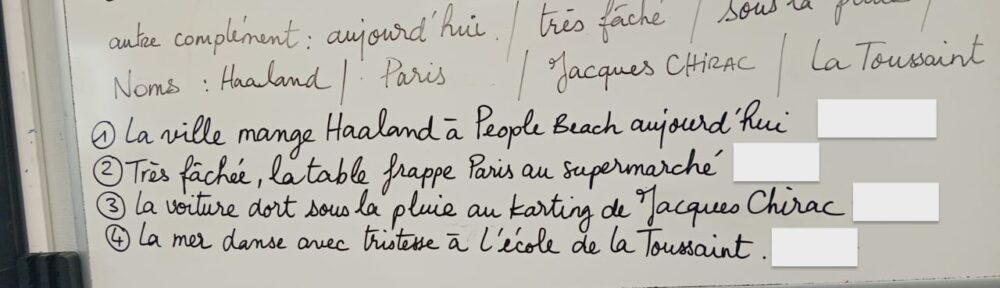 autre complément : aujourd'hui. / très fâché / sous la pluie /
Noms : Haaland / Paris / Jacques CHIRAC / La Toussaint
① La ville mange Haaland à People Beach aujourd'hui
② Très fâchée, la table frappe Paris au supermarché
③ La voiture dort sous la pluie au karting de Jacques Chirac
④ La mer danse avec tristesse à l'école de la Toussaint.